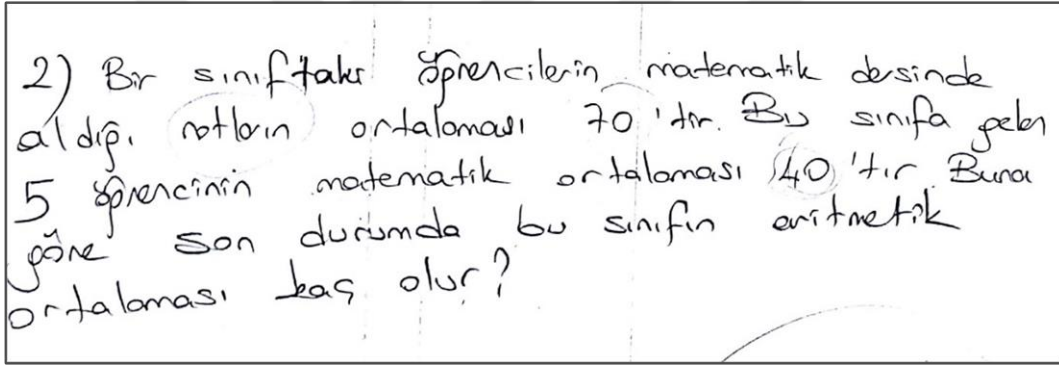 2) Bir sınıftaki öğrencilerin matematik dersinde
aldığı notların ortalaması 70'tir. Bu sınıfa gelen
5 öğrencinin matematik ortalaması 40'tır. Buna
göre son durumda bu sınıfın aritmetik
ortalaması kaç olur?